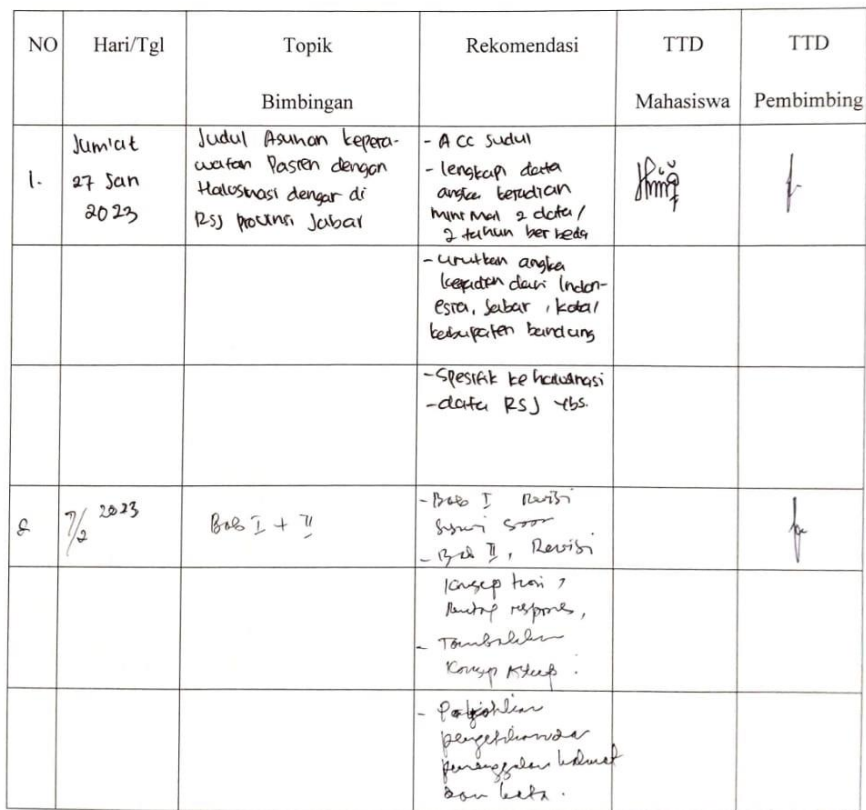 NO Hari/Tgl Topik Bimbingan Rekomendasi TTD Mahasiswa TTD Pembimbing
1.
Jum'at
27 Jan
2023
Judul Asuhan kepera-
watan Pasien dengan
Halusinasi dengar di
RSJ provinsi Jabar
- Acc Judul
- lengkapi data
angka kejadian
minimal 2 data/
2 tahun berbeda
- urutkan angka
kejadian dari Indon-
esia, Jabar, kota/
kabupaten bandung
- Spesifik ke halusinasi
- data RSJ ybs.
2
7/2 2023
Bab I + II
- Bab I Revisi
sesuai saran
- Bab II, Revisi
Konsep teori,
rentang respons,
- Tambahkan
Konsep Askep.
- Perhatikan
pengetikan dan
pemenggalan kalimat
dan kata.